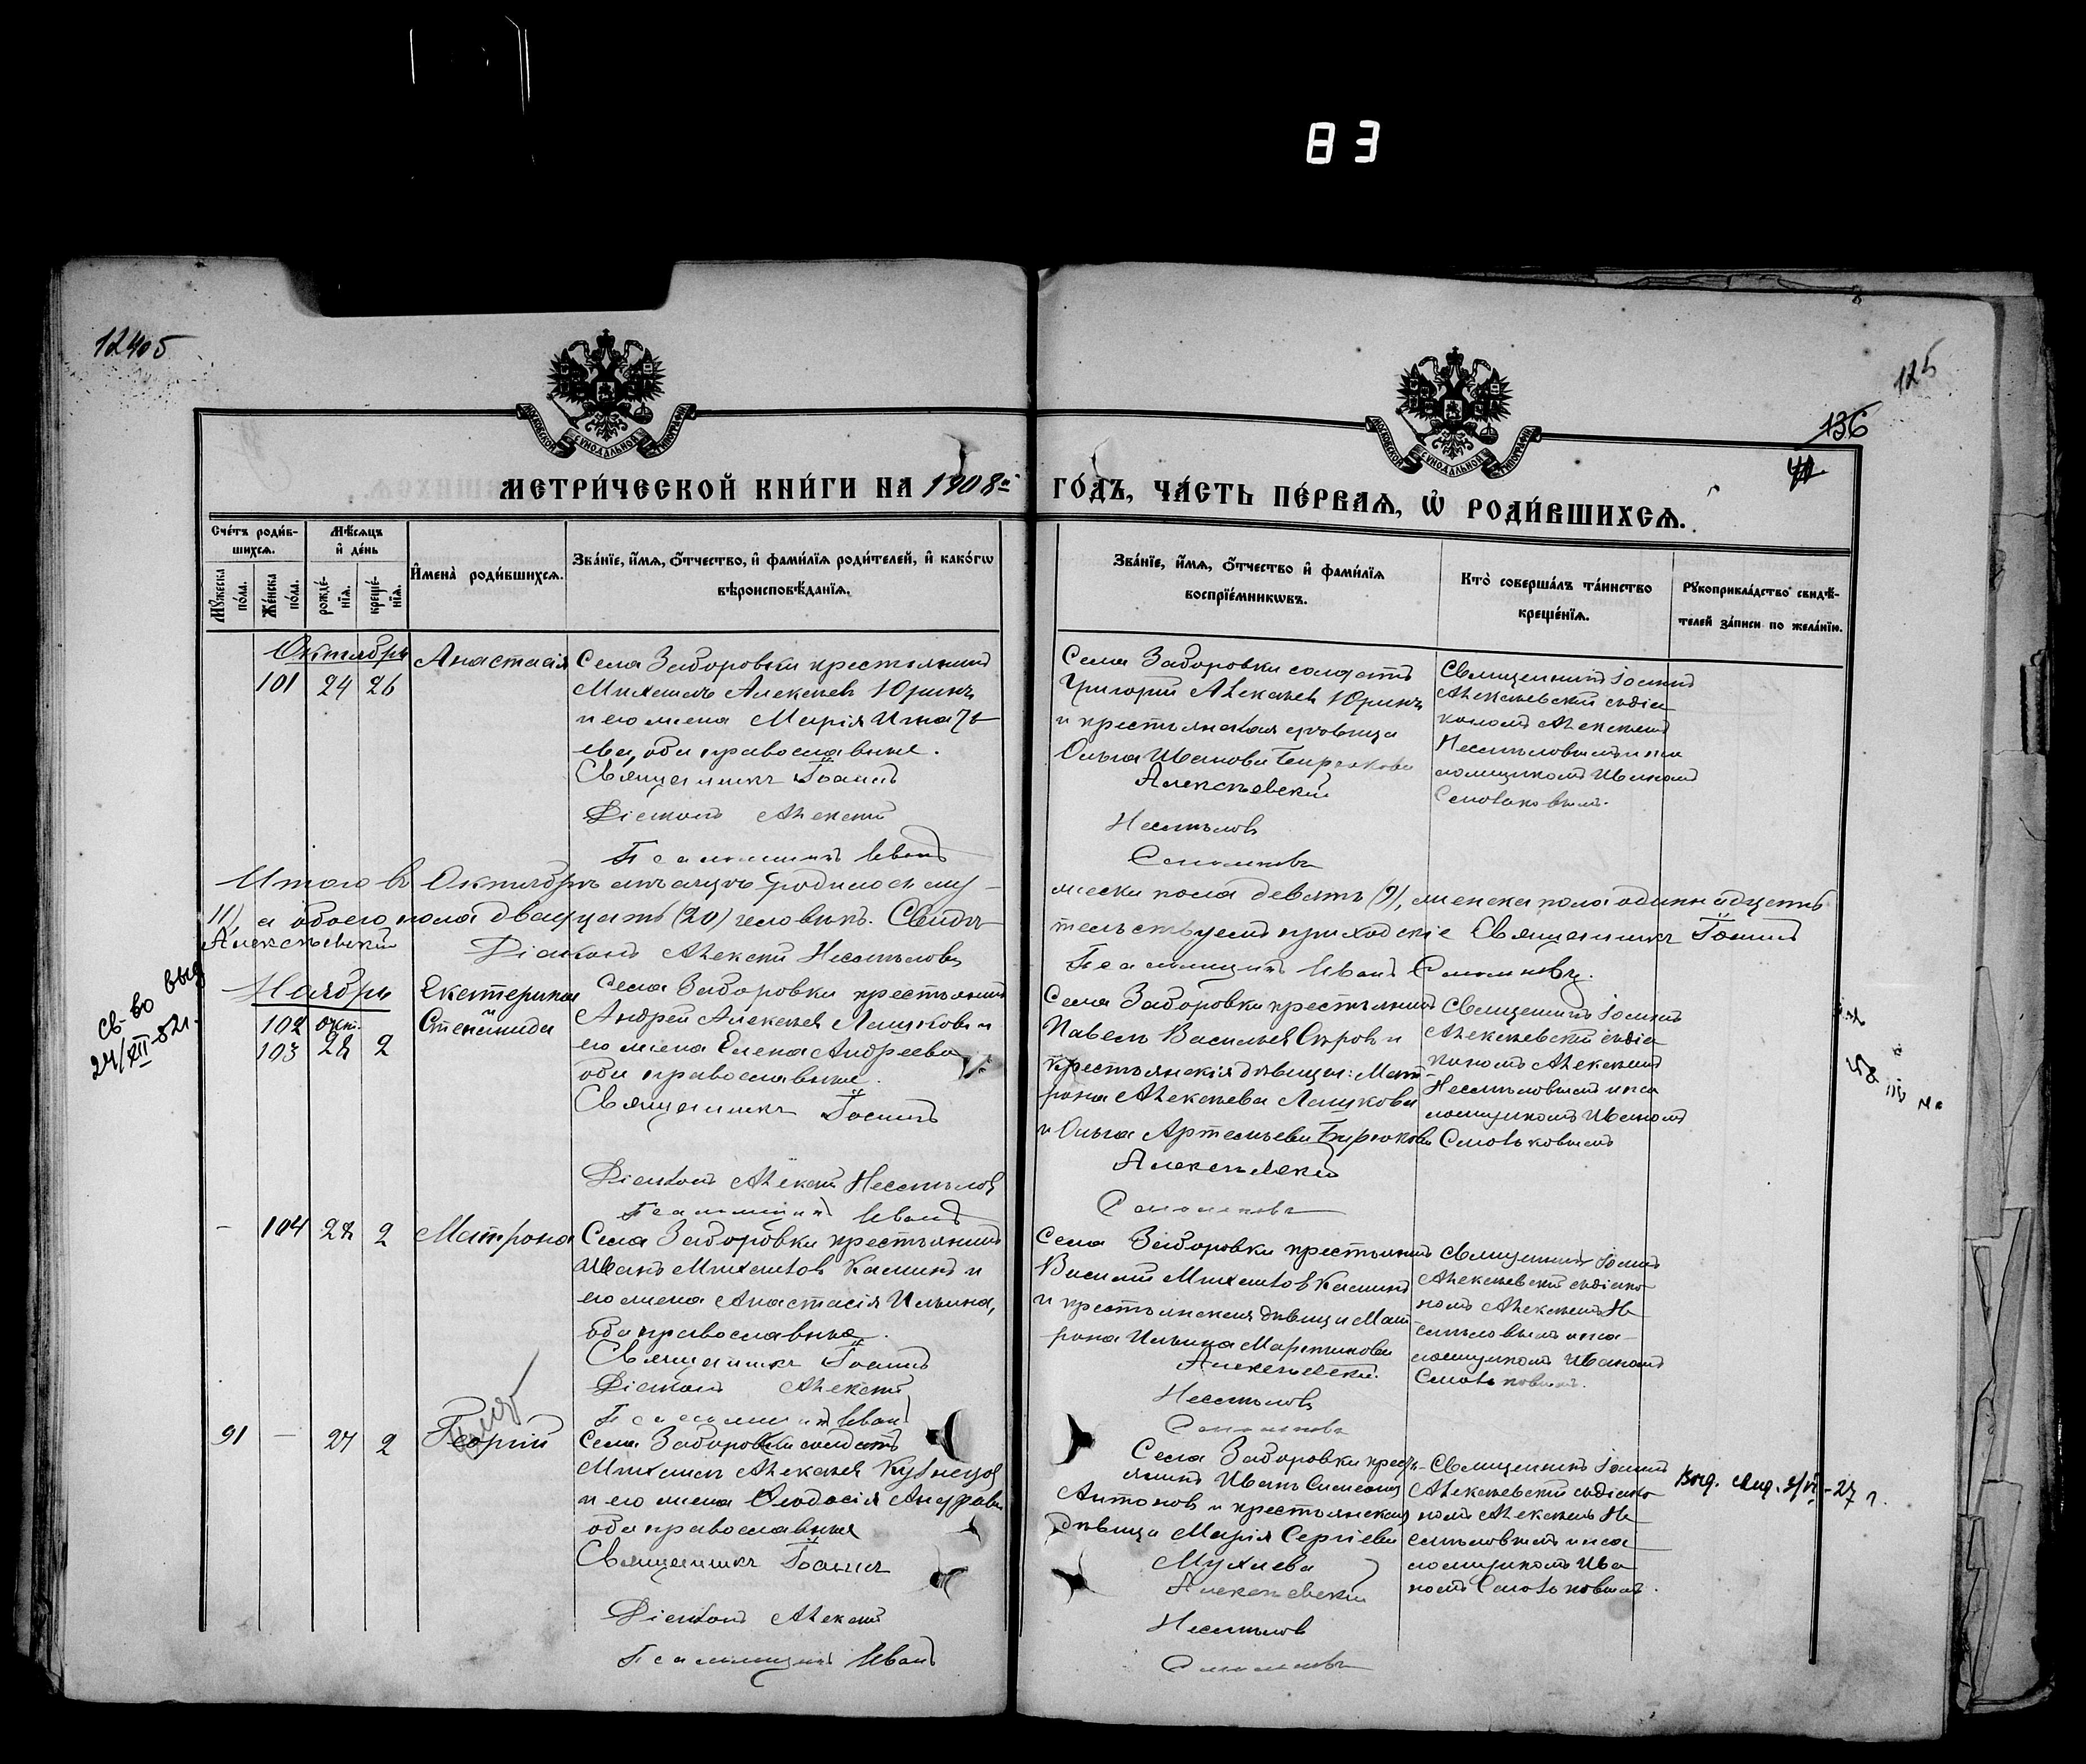 83
124об
125
136
МОСКОВСКОЙ СѴНОДАЛЬНОЙ ТИПОГРАФІИ
МОСКОВСКОЙ СѴНОДАЛЬНОЙ ТИПОГРАФІИ
МЕТРИ́ЧЕСКОЙ КНИ́ГИ НА 1908й ГО́ДЪ, ЧА́СТЬ ПЕ́РВАѦ, Ѡ҆ РОДИ́ВШИХСѦ.
Сче́тъ роди́в-
шихсѧ.
Мꙋ́жеска по́ла.
Же́нска по́ла.
Мѣ́сѧцъ
и҆ де́нь
рожде́-нїѧ.
креще́-нїѧ.
И҆мена̀ роди́вшихсѧ.
Зва́нїе, и҆́мѧ, ѻ҆́тчество, и҆ фами́лїѧ роди́телей, и҆ како́гѡ
вѣроисповѣ́данїѧ.
Зва́нїе, и҆́мѧ, ѻ҆́тчество и҆ фами́лїѧ
воспрїе́мникѡвъ.
Кто̀ соверша́лъ та́инство
креще́нїѧ.
Рꙋкоприкла́дство свидѣ́-
телей за́писи по жела́нїю.
Октябрь
101 24 26
Анастасія
Села Заборовки крестьянинъ
Михаилъ Алексѣевъ Юринъ
и его жена Марія Игнатье-
ва, оба православные.
Священникъ Іоаннъ
Діаконъ Алексій
Псаломщикъ Иванъ
Села Заборовки солдатъ
Григорій Алексѣевъ Юринъ
и крестьянская дѣвица
Ольга Иванова Бирюкова
Алексѣевскій
Несмѣловъ
Священникъ Іоаннъ
Алексѣевскій съ діа-
кономъ Алексѣемъ
Несмѣловымъ и пса-
ломщикомъ Иваномъ
Итого въ Октябрѣ мѣсяцѣ родилось му-
жеска пола девять (9), женска пола одиннадцать
11), а обоего пола двадцать (20) человѣкъ. Свидѣ-
тельствуемъ приходскіе Священникъ Іоаннъ
Алексѣевскій
Діаконъ Алексій Несмѣловъ
Псаломщикъ Иванъ
Св-во выд
24/XII-52г.
Ноябрь
102 окт.
103 28 2
Екатерина
и
Степанида
Села Заборовки крестьянинъ
Андрей Алексѣевъ Лашковъ и
его жена Елена Андреева
оба православные.
Священникъ Іоаннъ
Діаконъ Алексій Несмѣловъ
Псаломщикъ Иванъ
Села Заборовки крестьянинъ
Павелъ Васильевъ Сѣровъ и
крестьянскія дѣвицы: Мат-
рона Алексѣева Лашкова
и Ольга Артемьева Бирюкова
Алексѣевскій
Священникъ Іоаннъ
Алексѣевскій съ діа-
кономъ Алексѣемъ
Несмѣловымъ и пса-
ломщикомъ Иваномъ
- 104 28 2
Матрона
Села Заборовки крестьянинъ
Иванъ Михайловъ Калинъ и
его жена Анастасія Ильина,
оба православные.
Священникъ Іоаннъ
Діаконъ Алексій
Псаломщикъ Иванъ
Села Заборовки крестьянинъ
Василій Михайловъ Калинъ
и крестьянская дѣвица Мат-
рона Ильина Мартынова
Алексѣевскій
Несмѣловъ
Священникъ Іоаннъ
Алексѣевскій съ діако-
номъ Алексѣемъ Не-
смѣловымъ и пса-
ломщикомъ Иваномъ
91 - 27 2
Георгій
Села Заборовки солдатъ
Михаилъ Алексѣевъ Кузнецовъ
и его жена Ѳеодосія
оба православные
Священникъ Іоаннъ
Діаконъ Алексій
Псаломщикъ Иванъ
Села Заборовки кресть-
янинъ Иванъ
Антоновъ и крестьянская
дѣвица Марія Сергіева
Алексѣевскій
Несмѣловъ
Священникъ Іоаннъ
Алексѣевскій съ діако-
номъ Алексѣемъ Не-
смѣловымъ и пса-
ломщикомъ Ива-
номъ